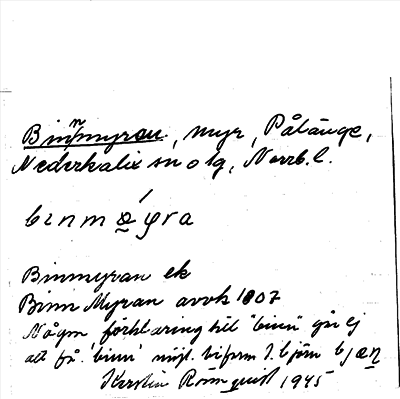 Binnmyran, myr, Pålänge,
Nederkalix sn o tg, Norrb. l.
Binmyran ek
Binn Myran avvk 1807
Någon förklaring till "binn" går ej
att få. "binn" möjl. biform t. björn
Kerstin Rönnquist 1945